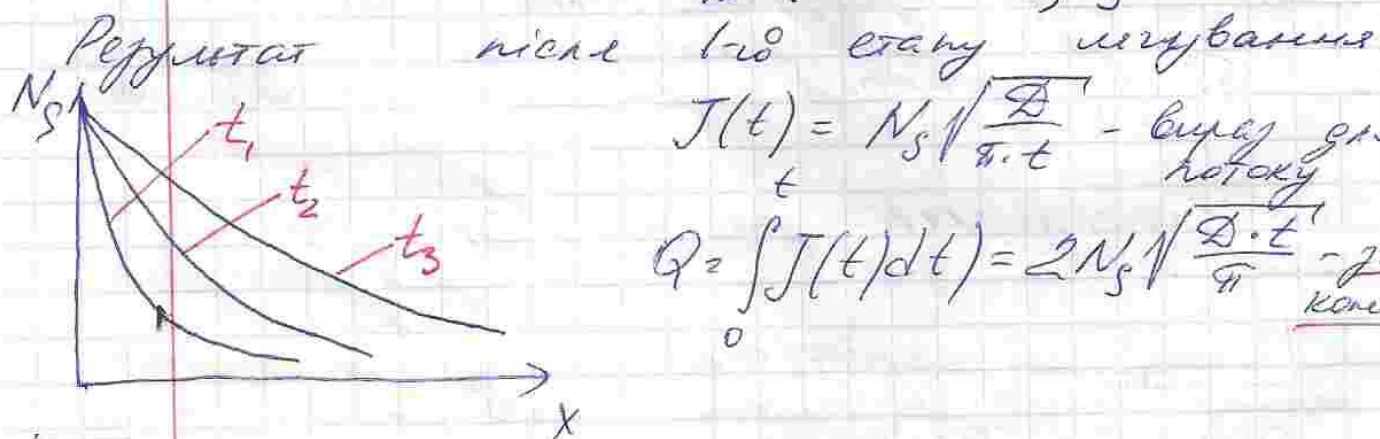 Результат після 1-го етапу легування
N_S
t_1
t_2
t_3
x
J(t) = N_S √(D/(π·t)) - вираз для
потоку
Q = ∫_0^t J(t)dt) = 2N_S √(D·t/π)